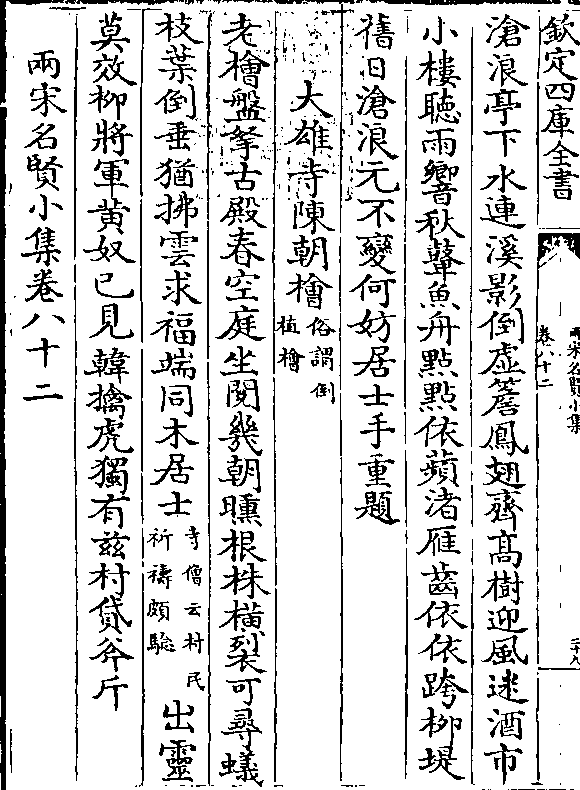 欽定四庫全書
兩宋名賢小集
卷八十二
二十八
滄浪亭下水連溪影倒虛簷鳳翅齊髙樹迎風迷酒市
小樓聽雨響秋鼙魚舟點點依蘋渚雁齒依依跨柳堤
舊日滄浪元不變何妨居士手重題
大雄寺陳朝檜俗謂倒
植檜
老檜盤拏古殿春空庭坐閱幾朝曛根株橫裂可尋蟻
枝葉倒垂猶拂雲求福端同木居士寺僧云村民
祈禱頗驗出靈
莫效柳將軍黄奴已見韓擒虎獨有兹村貸斧斤
兩宋名賢小集卷八十二